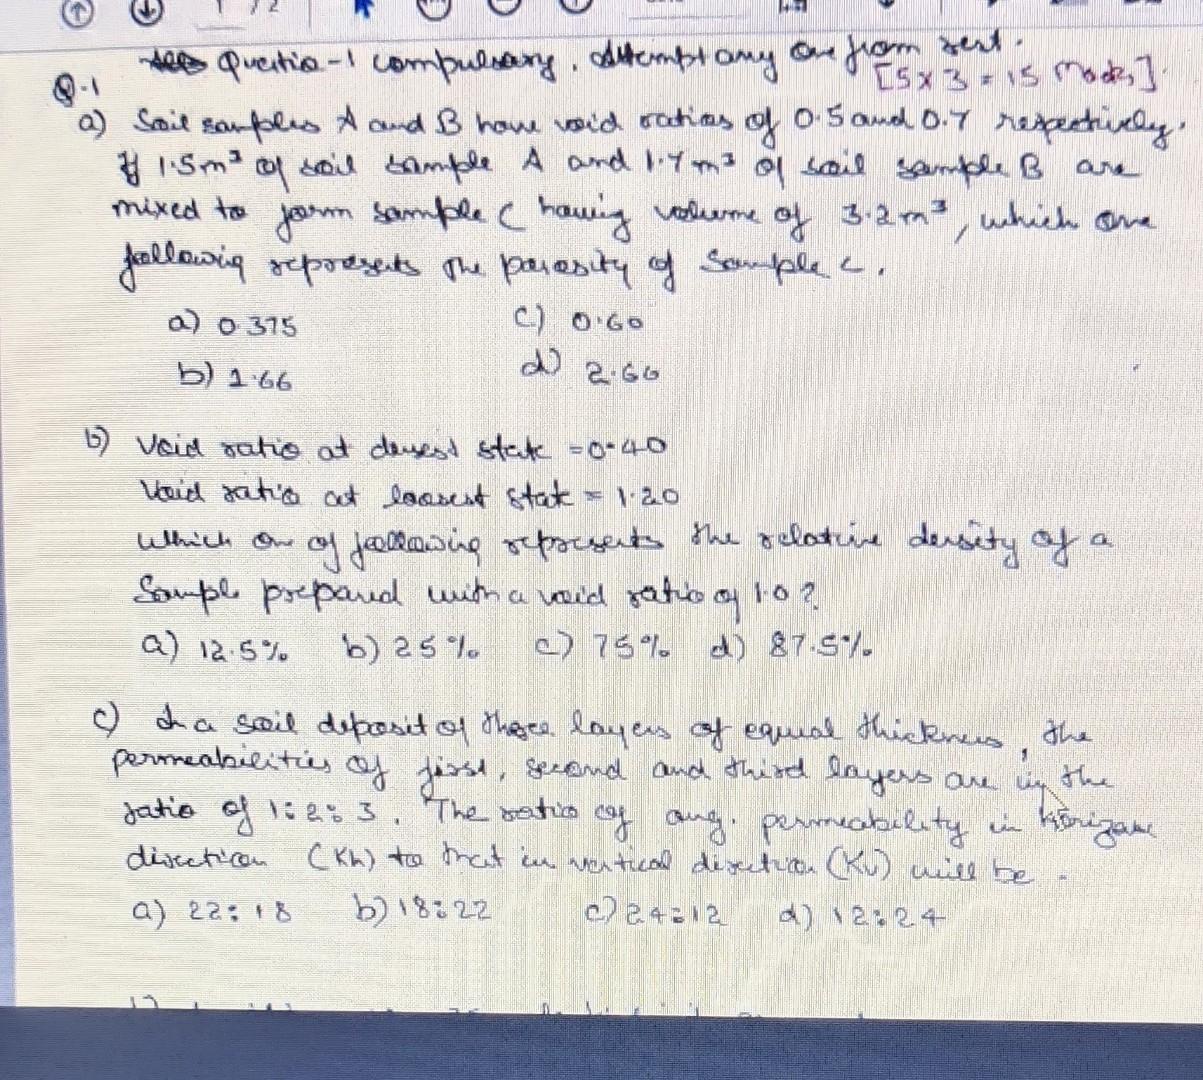 1 / 2
Question-1 compulsory, Attempt any one from rest.
[5 x 3 = 15 Marks]
Q.1
a) Soil samples A and B have void ratios of 0.5 and 0.7 respectively.
If 1.5m³ of soil sample A and 1.7m³ of soil sample B are
mixed to form sample C having volume of 3.2m³, which one
following represents the porosity of Sample C.
a) 0.375 c) 0.60
b) 1.66 d) 2.66
b) Void ratio at densest state = 0.40
Void ratio at loosest state = 1.20
Which one of following represents the relative density of a
Sample prepared with a void ratio of 1.0?
a) 12.5% b) 25% c) 75% d) 87.5%
c) In a soil deposit of three layers of equal thickness, the
permeabilities of first, second and third layers are in the
ratio of 1:2:3. The ratio of avg. permeability in
direction (Kh) to that in vertical direction (Kv) will be -
a) 22:18 b) 18:22 c) 24:12 d) 12:24